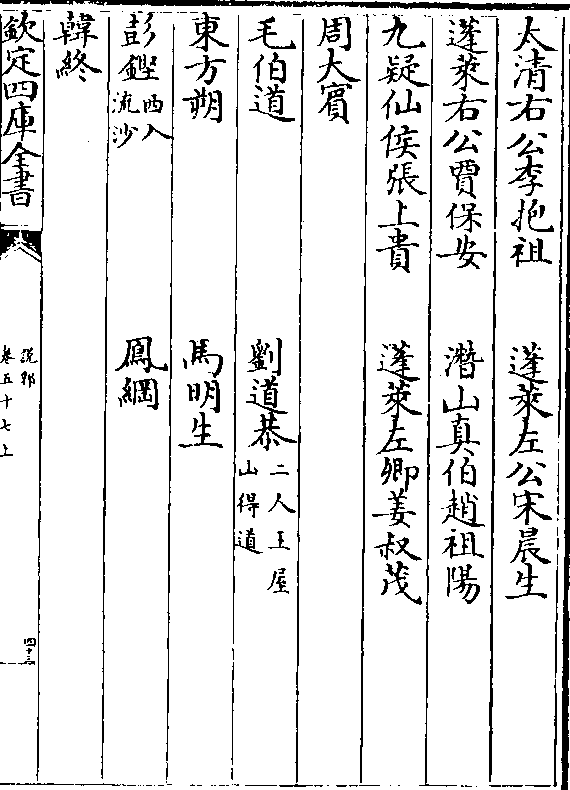 太清右公李抱祖　蓬萊左公宋晨生
蓬萊右公賈保安　潛山真伯趙祖陽
九疑仙侯張上貴　蓬萊左卿姜叔茂
周大賓
毛伯道　劉道恭二人王屋山得道
東方朔　馬明生
彭鏗西入流沙　鳳綱
韓終
欽定四庫全書　說郛卷五十七上　四十三